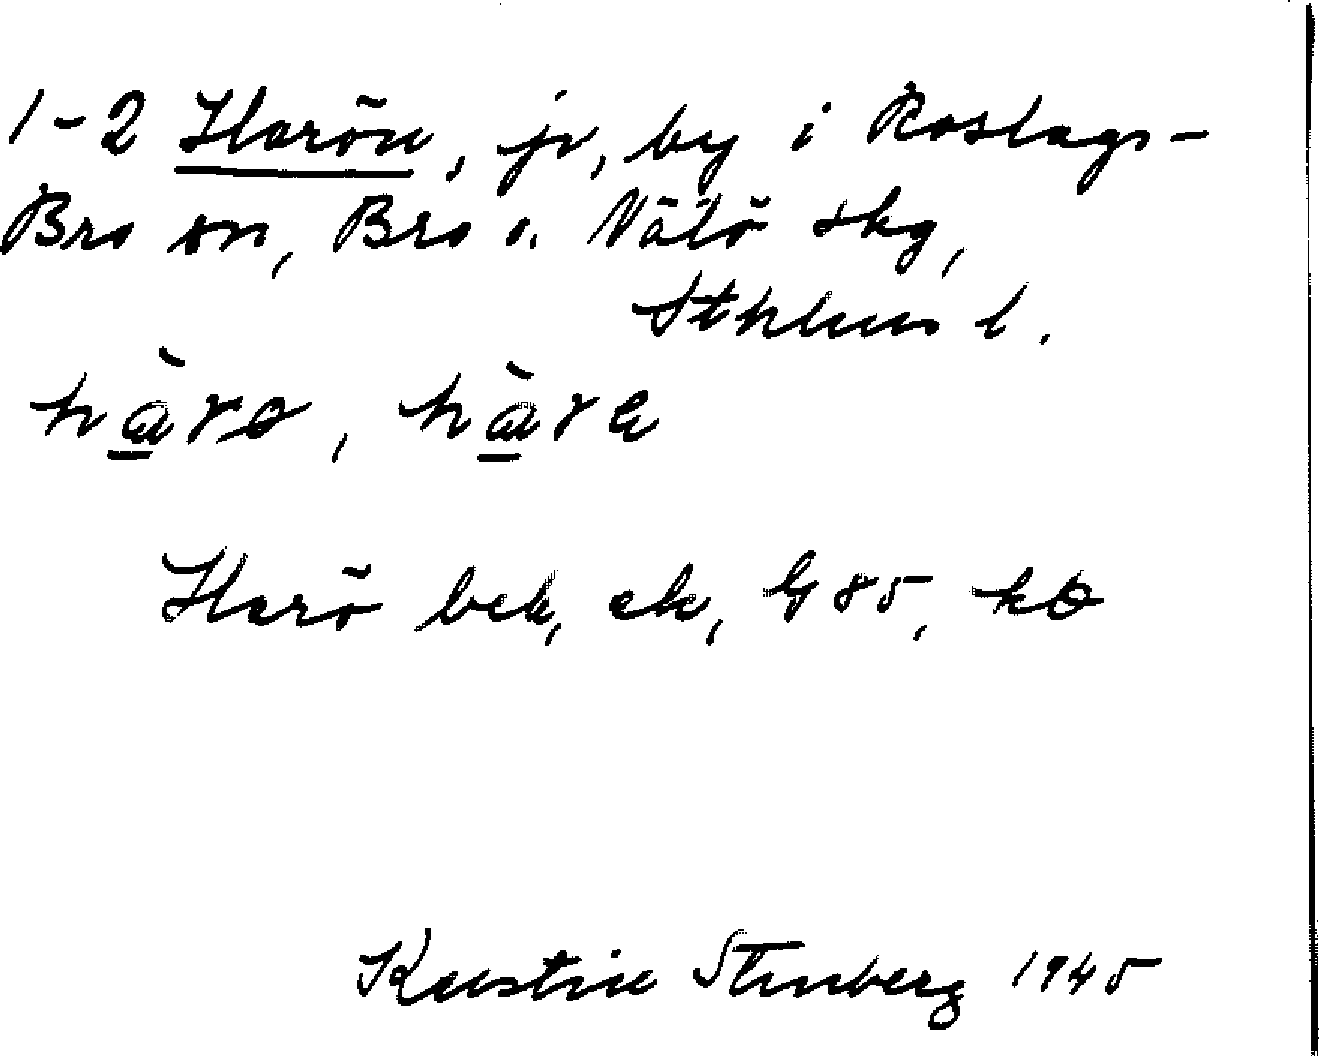 1-2 Harön, jr, by i Roslags-
Bro sn, Bro o. Vätö skg,
Sthlms l.
hàrө, hàra
Harö bek, ek, G 85, kө
Kerstin Stenberg 1945